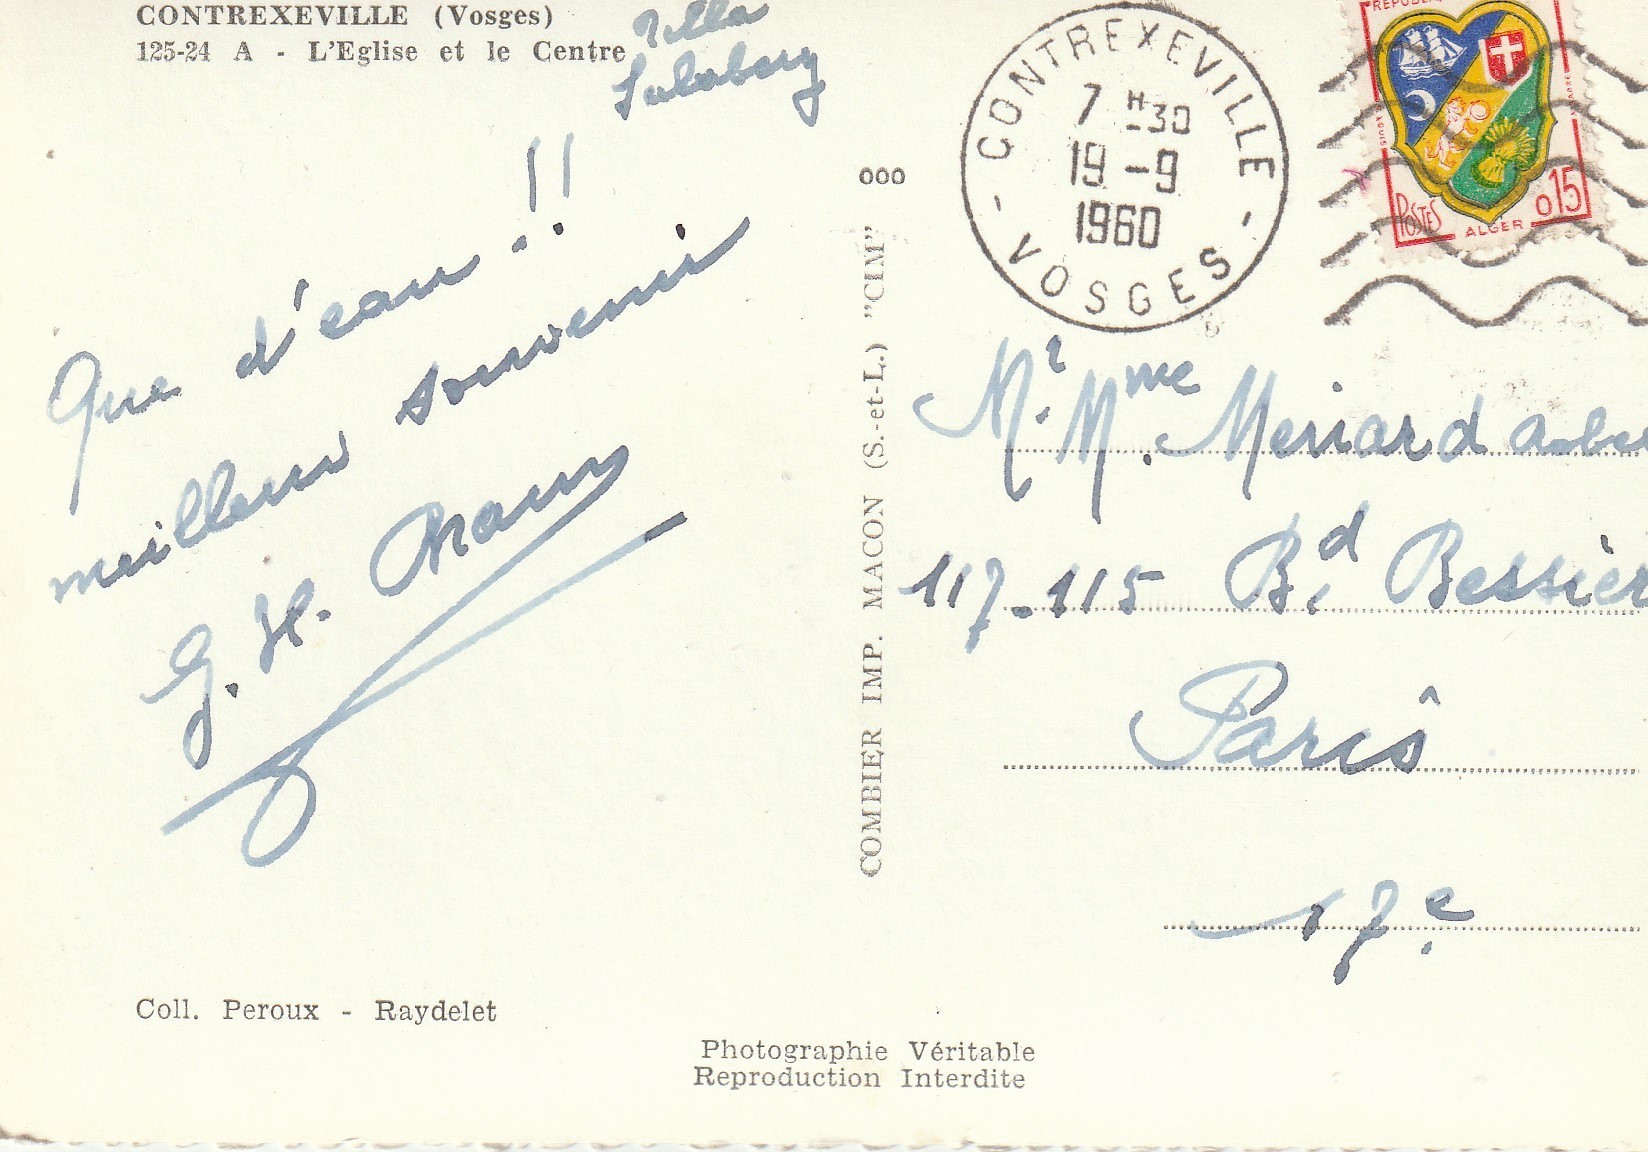 CONTREXEVILLE (Vosges)
125-24 A - L'Eglise et le Centre
Villa
Que d'eau !!
meilleur souvenir
G. H.
Coll. Peroux - Raydelet
COMBIER IMP. MACON (S.-et-L.) "CIM"
ooo
CONTREXEVILLE
7 H 30
19 - 9
1960
- VOSGES -
REPUBLIQ
POSTES
ALGER
0,15
Mr. Mme. Meriard
117-115 Bd Bessièr
Paris
17e
Photographie Véritable
Reproduction Interdite